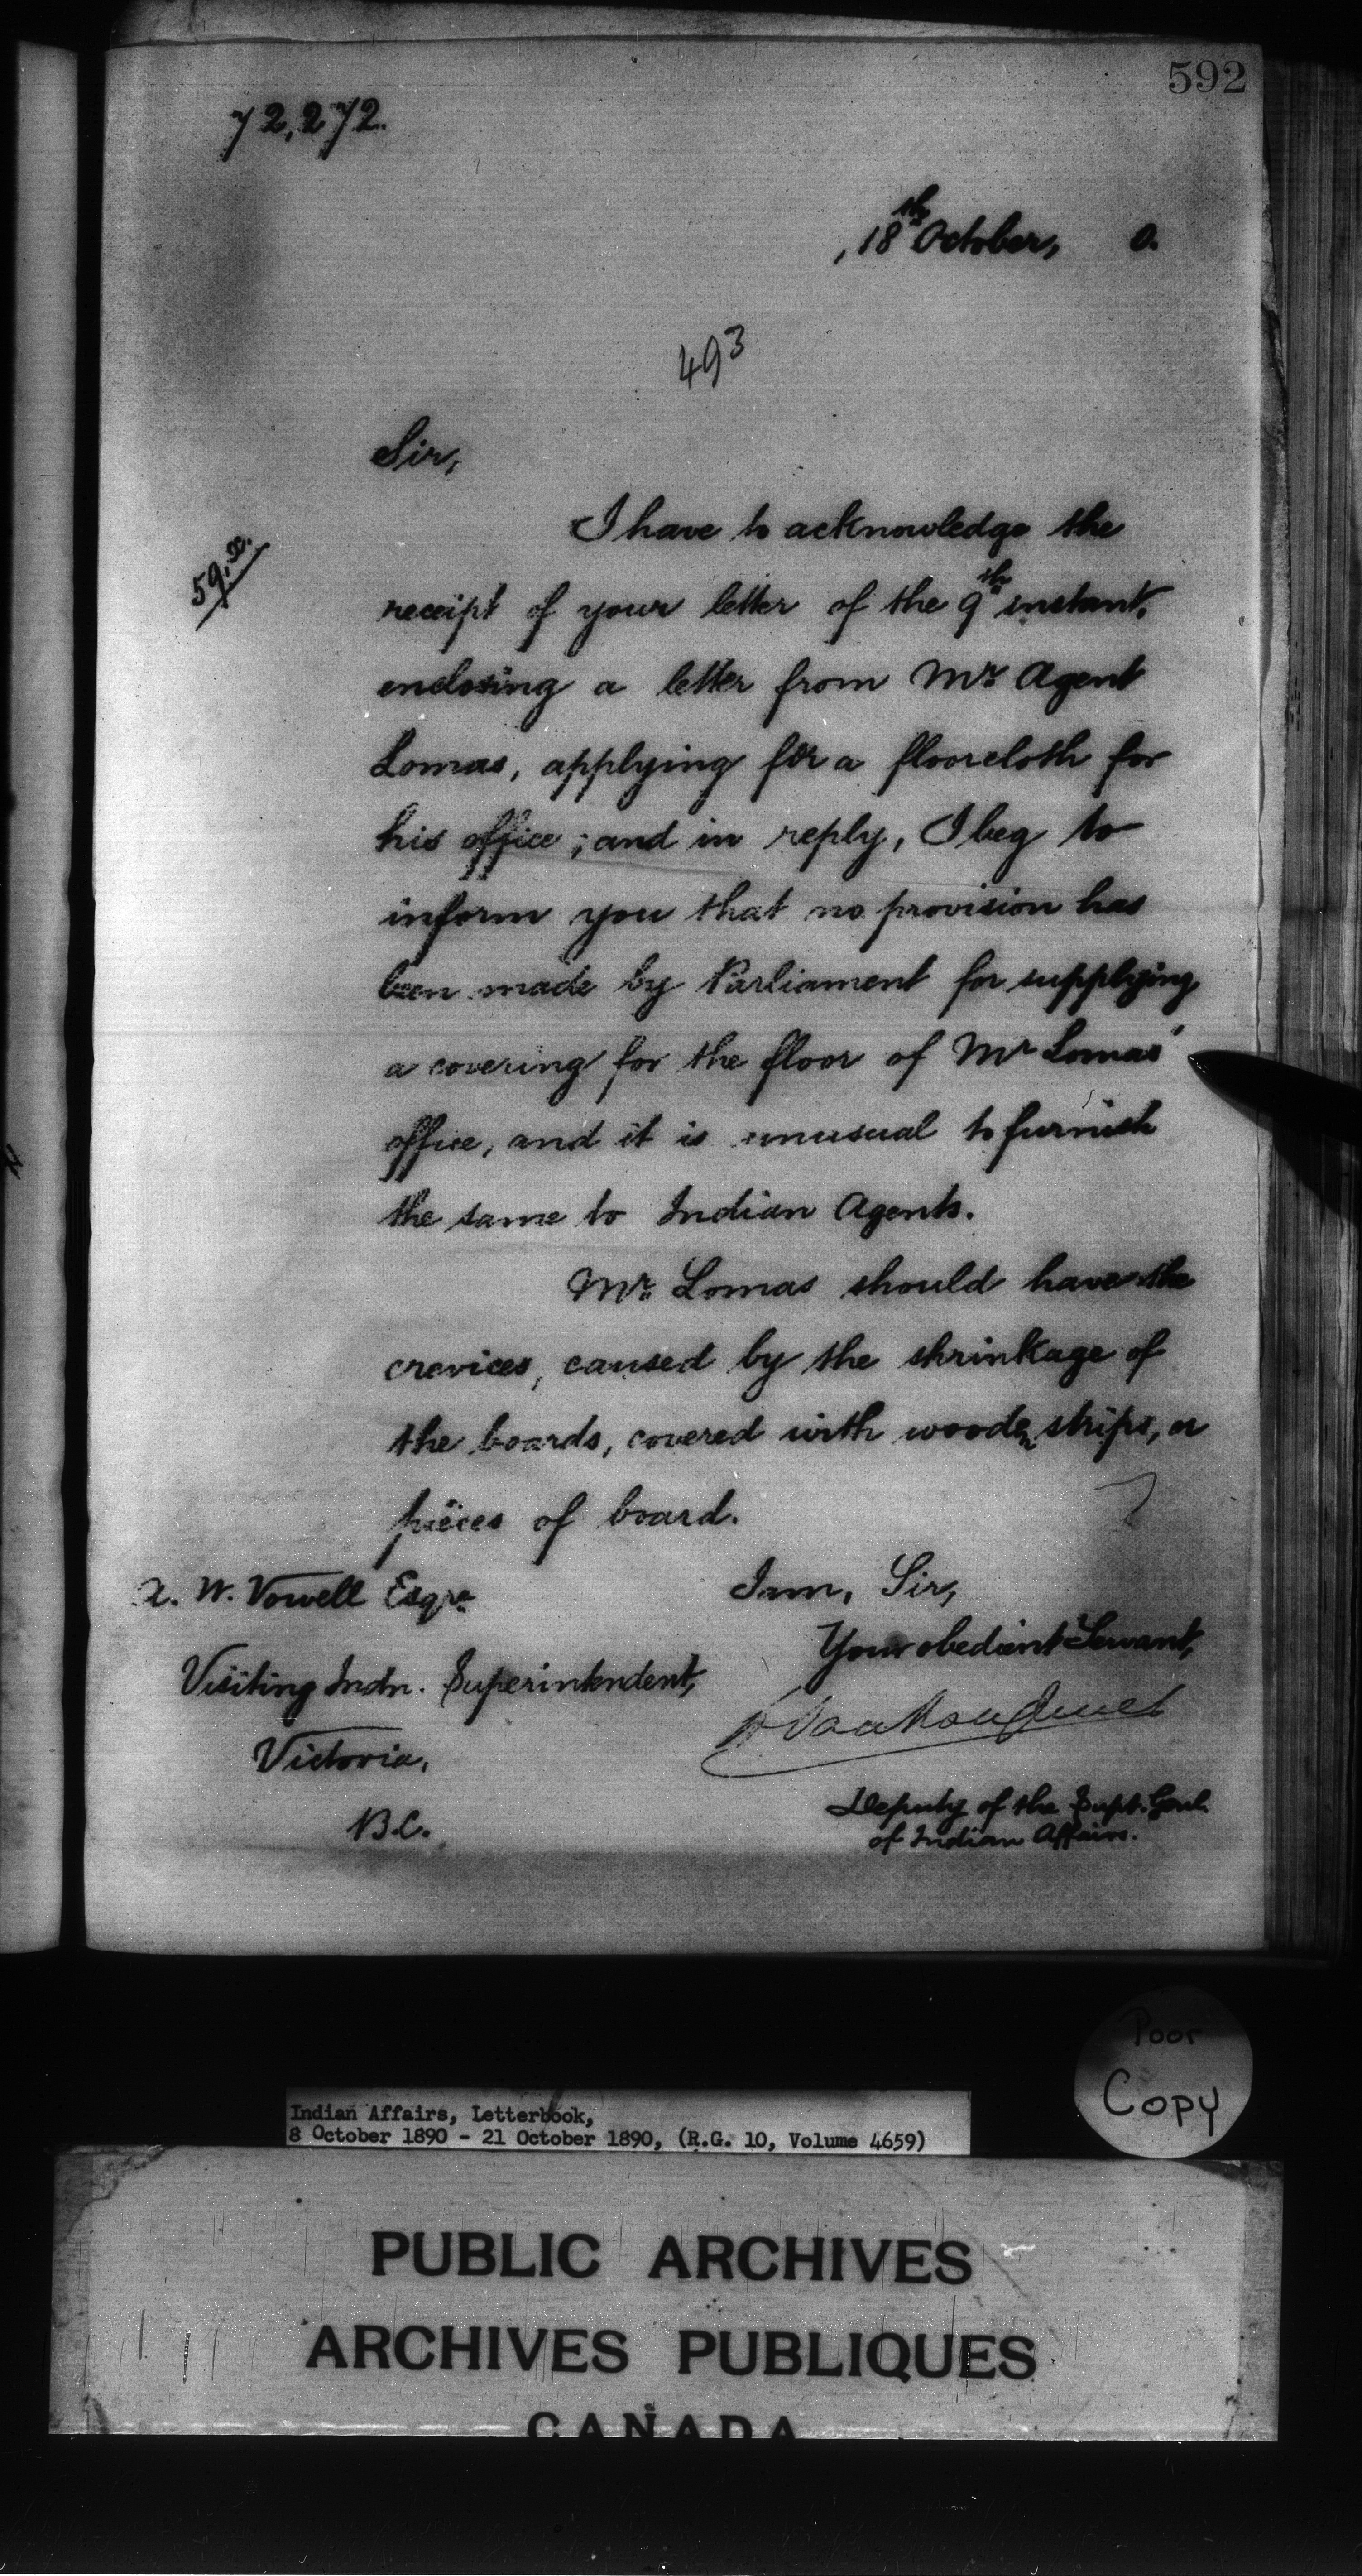 592
72,272.
, 18th October, 0.
493
Sir,
I have to acknowledge the
59, x.
receipt of your letter of the 9th instant,
enclosing a letter from Mr. Agent
Lomas, applying for a floorcloth for
his office; and in reply, I beg to
inform you that no provision has
been made by Parliament for supplying
a covering for the floor of Mr Lomas'
office, and it is unusual to furnish
the same to Indian Agents.
Mr. Lomas should have the
crevices, caused by the shrinkage of
the boards, covered with wooden strips, or
pieces of board.
A. W. Vowell Esqre
I am, Sir,
Your obedient Servant,
Visiting Indn. Superintendent,
L Vankoughnet
Victoria,
Deputy of the Supt. Genl.
B.C.
of Indian Affairs.
Poor
Copy
Indian Affairs, Letterbook,
8 October 1890 - 21 October 1890, (R.G. 10, Volume 4659)
PUBLIC ARCHIVES
ARCHIVES PUBLIQUES
CANADA